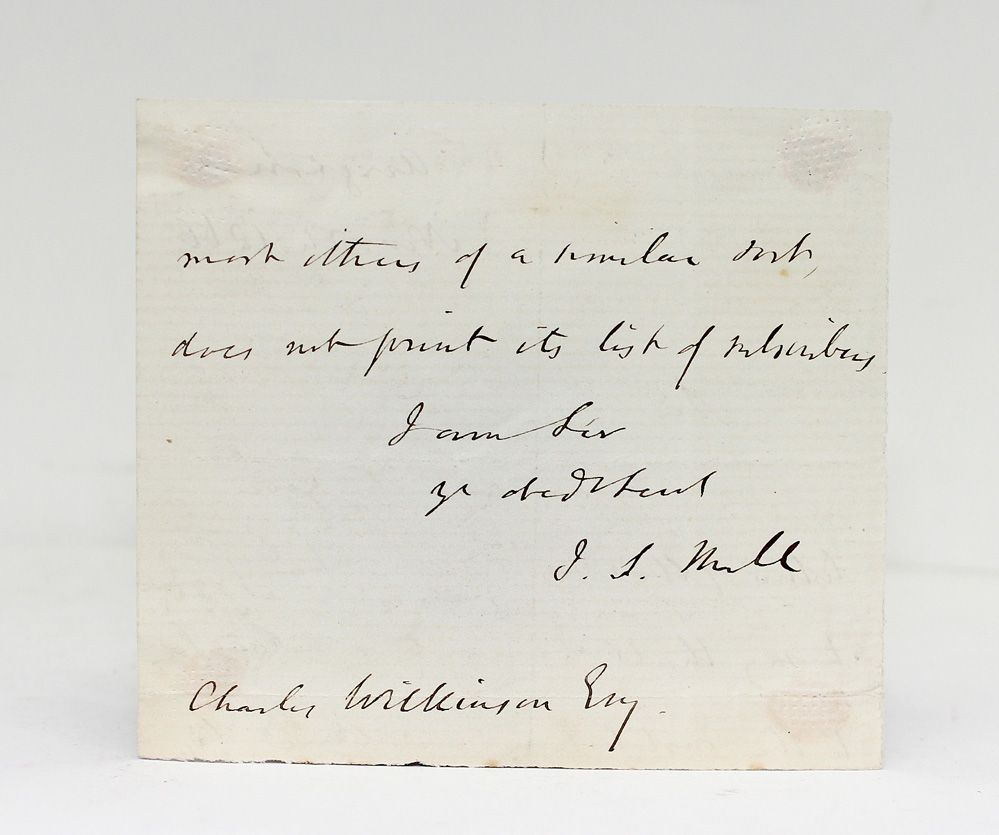 most others of a similar sort,
does not print its list of subscribers.
I am Sir
yr obedt Servt
J. S. Mill
Charles Wilkinson Esq.